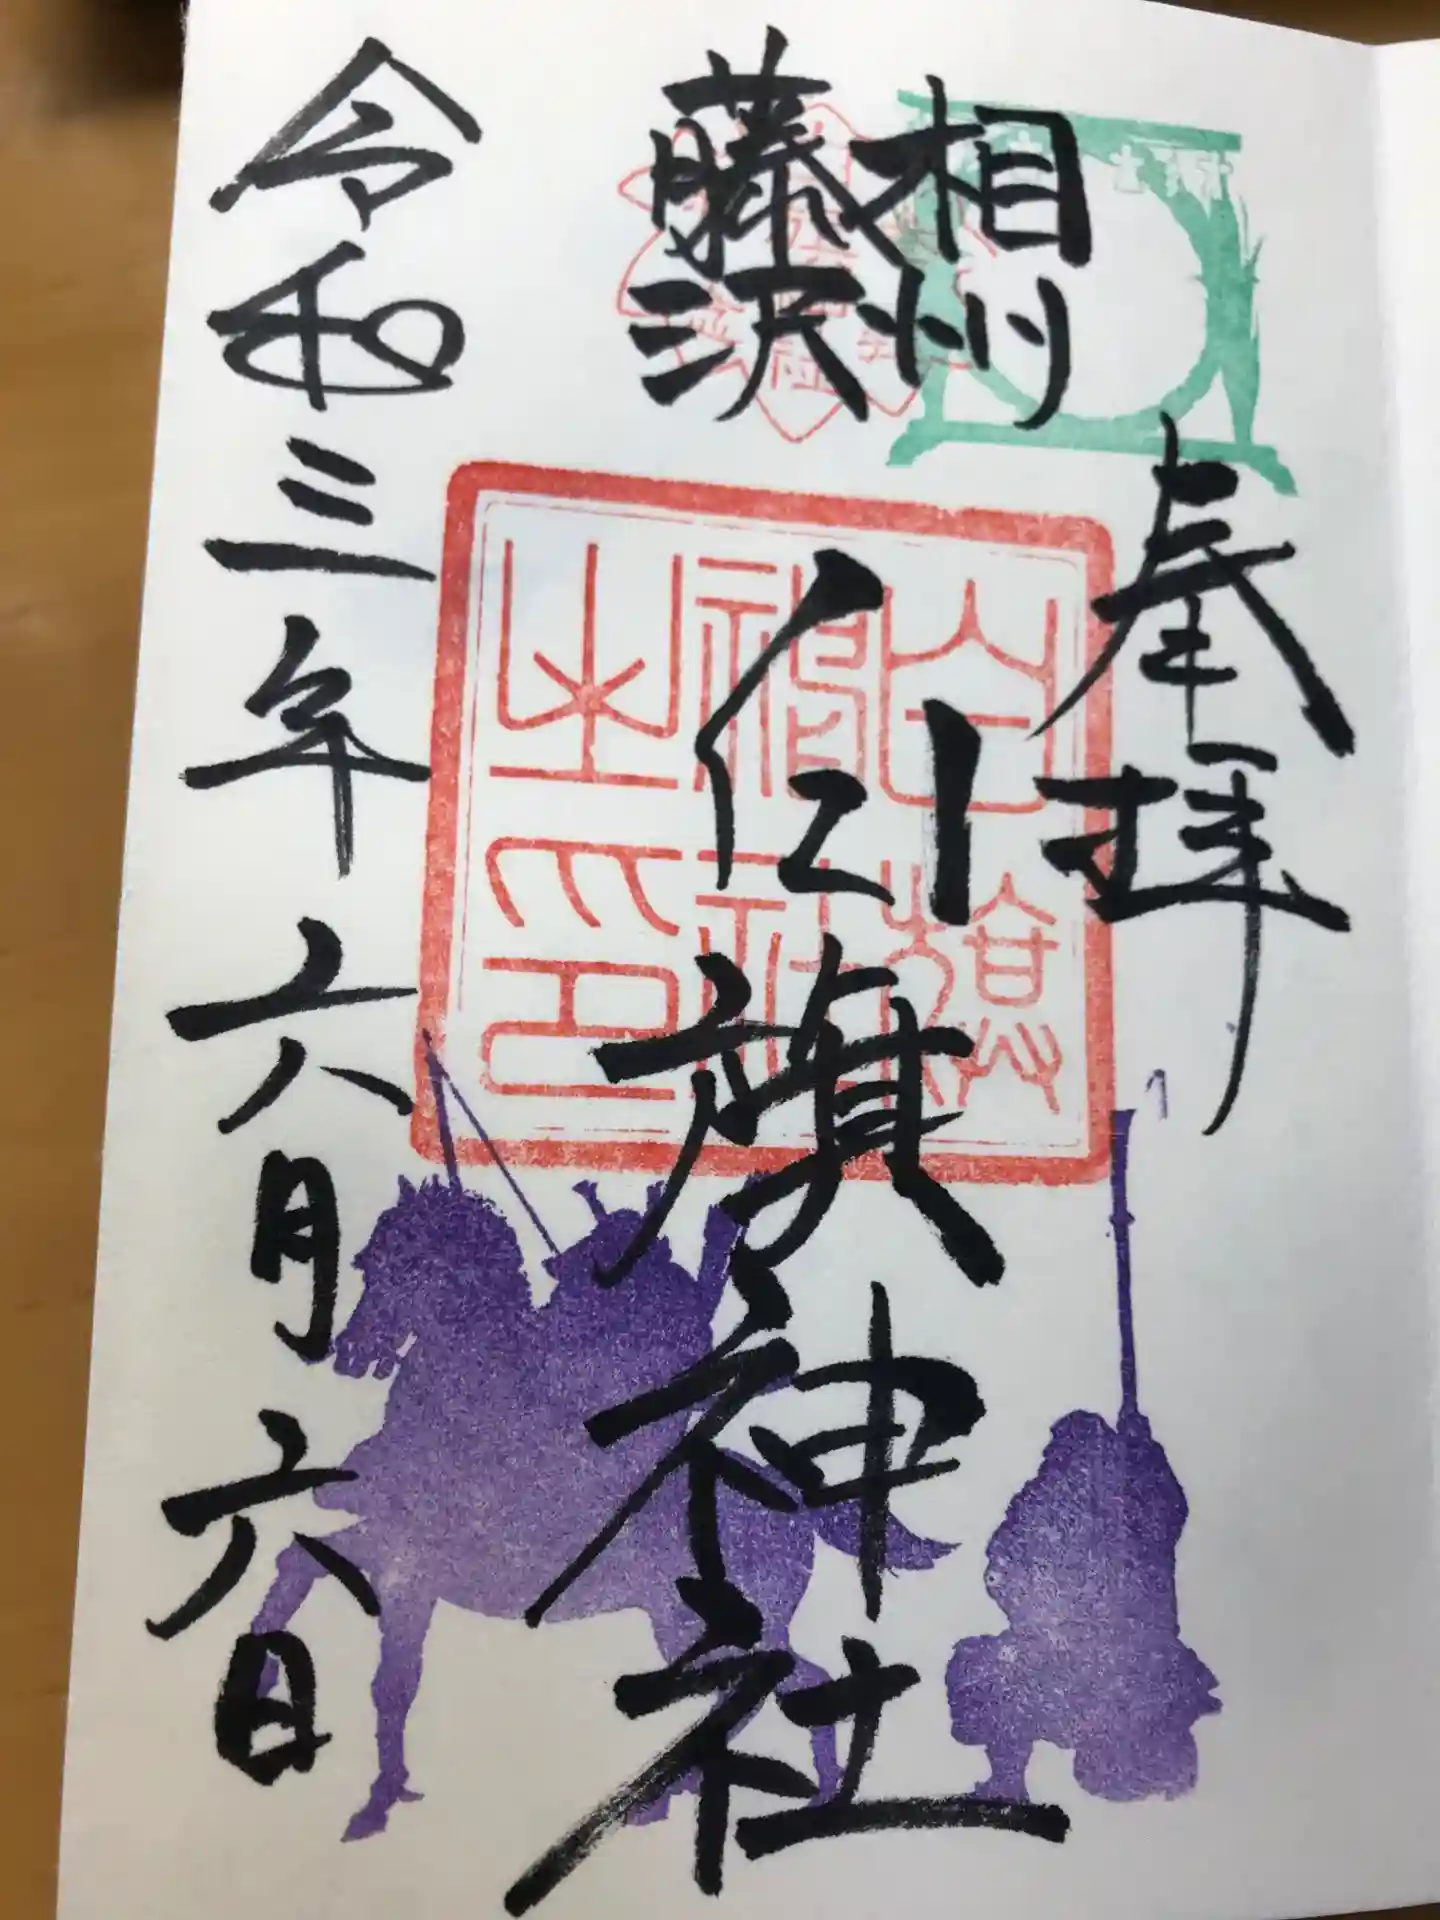 奉拝
相州
藤沢
白旗神社
令和三年六月六日
白旗
神社
之印